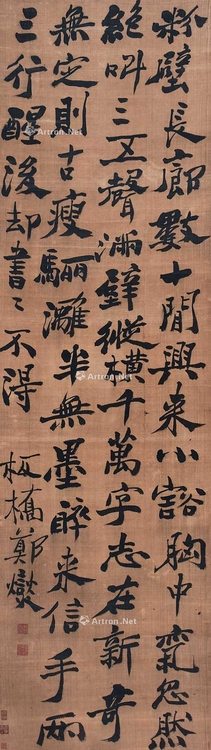 粉壁長廊數十間興来小豁胸中氣忽然
絕叫三五聲滿壁縱橫千萬字志在新奇
無定則古瘦驪灕半無墨醉来信手兩
三行醒後却書〻不得 板橋鄭燮
Artron.Net